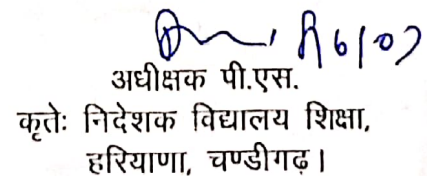 अधीक्षक पी.एस.
कृतेः निदेशक विद्यालय शिक्षा,
हरियाणा, चण्डीगढ़।